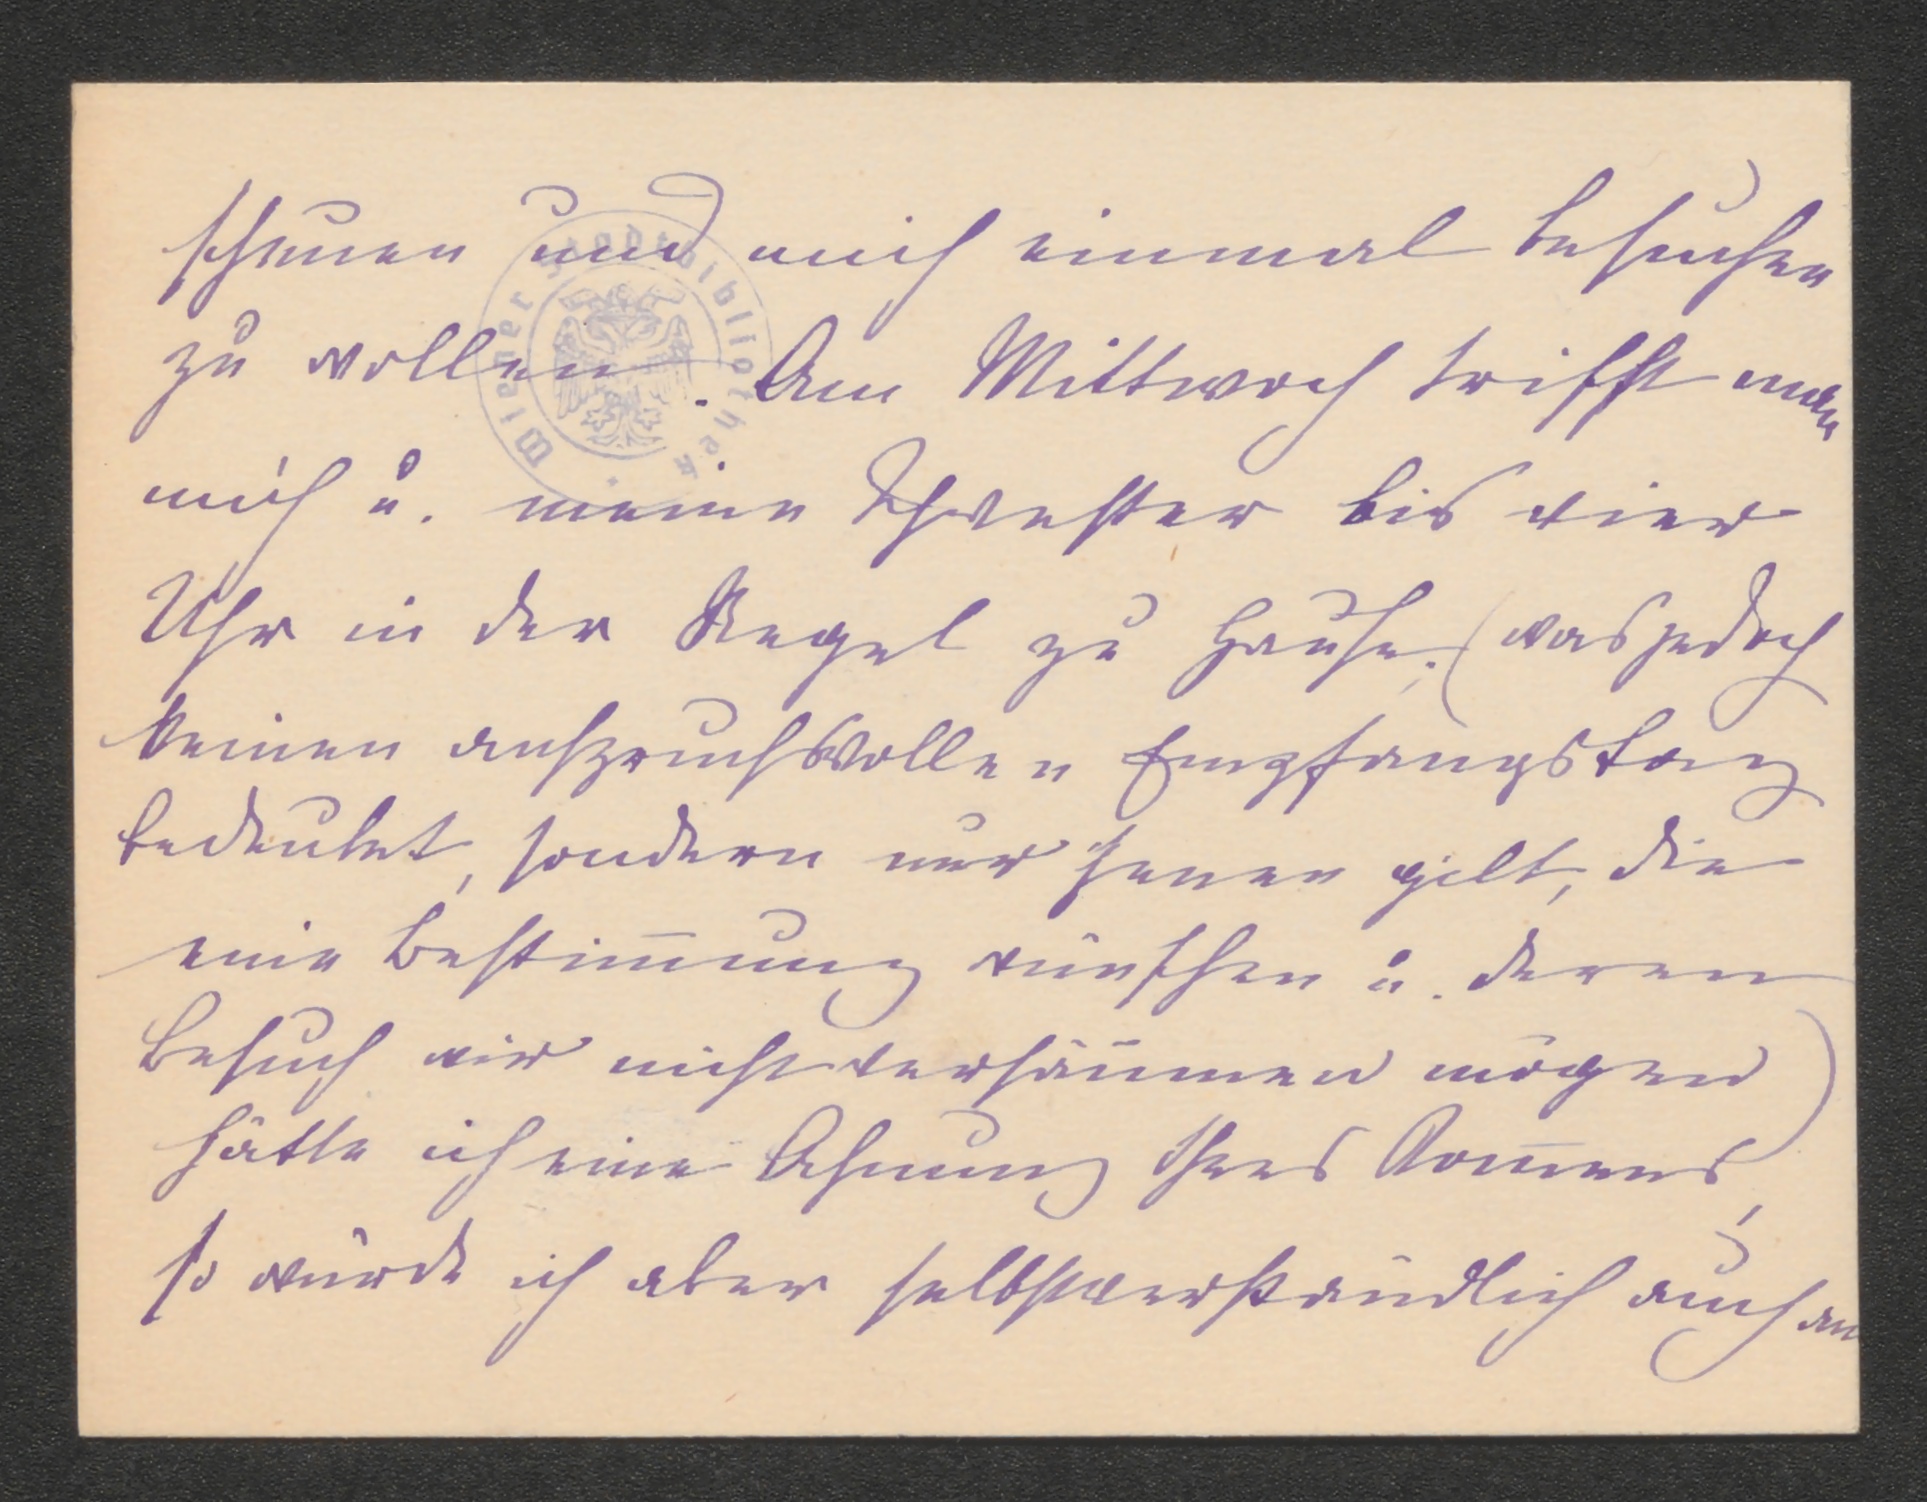 scheuen und mich einmal besuchen
zu wollen. Am Mittwoch trifft man
mich u. meine Schwester bis vier
Uhr in der Regel zu Hause, (was jedoch
keinen anspruchsvollen Empfangstag
bedeutet, sondern nur jenen gilt, die
eine Bestim̅ung wünschen u. deren
Besuch wir nicht versäumen mögen)
hätte ich eine Ahnung Ihres Kom̅ens,
so würde ich aber selbstverständlich auch an
Wiener Stadtbibliothek